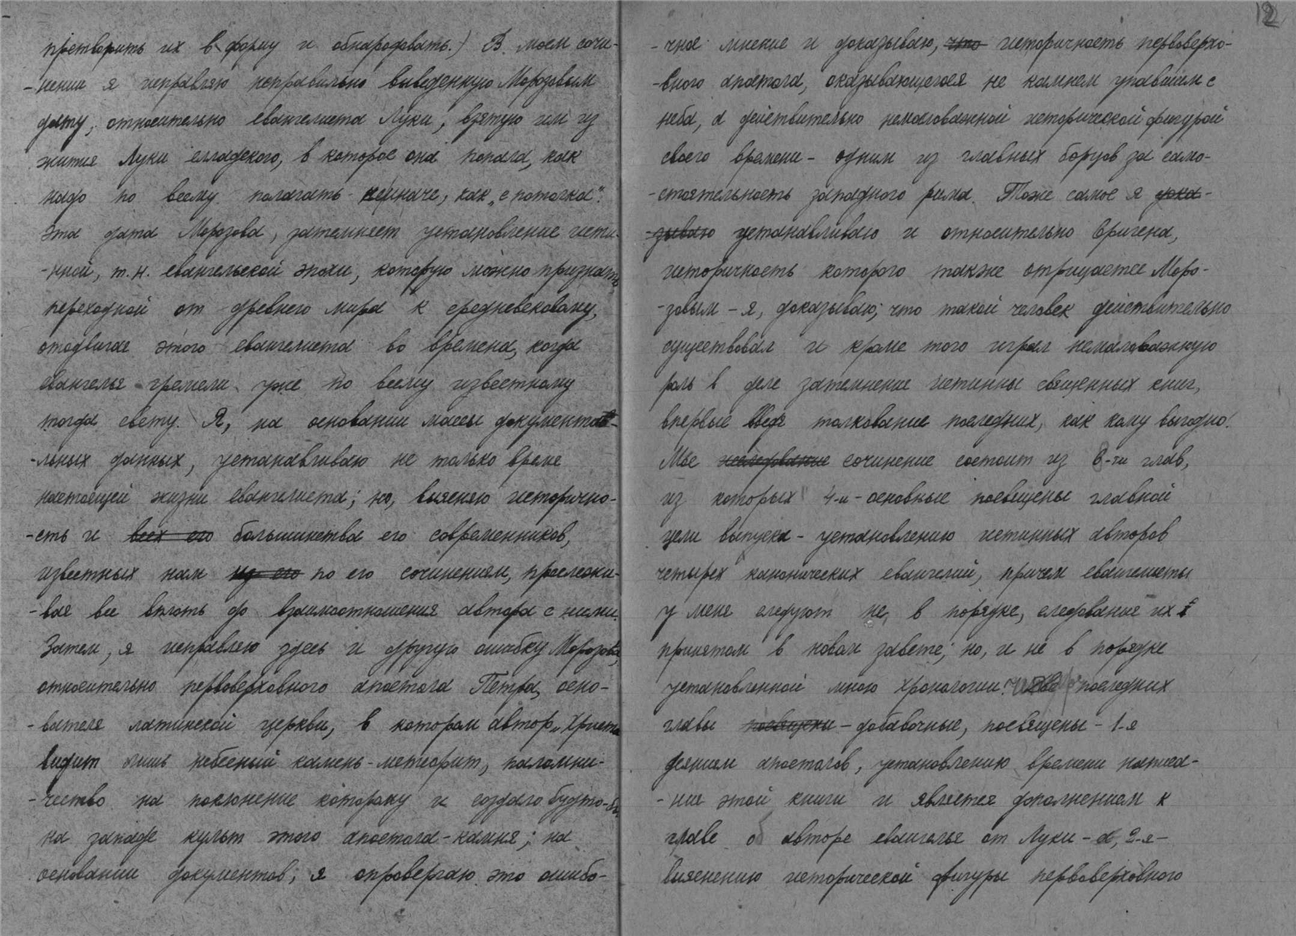 претворить их в форму и обнародовать.) В моем сочи-
-нении я исправляю неправильно выведенную Морозовым
дату, относительно евангелиста Луки, взятую им из
жития Луки елладского, в которое она попала, как
надо по всему полагать - неиначе, как „с потолка“.
Эта дата Морозова, затемняет установление исти-
-нной, т.н. евангельской эпохи, которую можно признать
переходной от древнего мира к средневековому,
отодвигая этого евангелиста во времена, когда
евангелья гремели уже по всему известному
тогда свету. Я, на основании массы документа-
-льных данных, устанавливаю не только время
настоящей жизни евангелиста; но, выясняю исторично-
-сть и всех его большинства его современников,
известных нам из его по его сочинениям, прослежи-
-вая все вплоть до взаимоотношения автора с ними.
Затем, я исправляю здесь и другую ошибку Морозова,
относительно первоверховного апостола Петра, осно-
-вателя латинской церкви, в котором автор „Христа
видит лишь небесный камень-метеорит, паломни-
-чество на поклонение которому и создало будто-бы
на западе культ этого апостола-камня; на
основании документов; я опровергаю это ошибо-
12
-чное мнение и доказываю, что историчность первоверхо-
-вного апостола, оказывающегося не камнем упавшим с
неба, а действительно немаловажной исторической фигурой
своего времени - одним из главных борцов за само-
-стоятельность западного рима. Тоже самое я дока-
-зываю устанавливаю и относительно Оригена,
историчность которого также отрицается Моро-
-зовым - я, доказываю, что такой человек действительно
существовал и кроме того играл немаловажную
роль в деле затемнение истинны священных книг,
впервые введя толкование последних, как кому выгодно!
Мое сочинение состоит из 8-ми глав,
из которых 4-и - основные посвещены главной
цели выпуска - установлению истинных авторов
четырех канонических евангелий, причем евангелисты
у меня следуют не, в порядке, следование их
принятом в новом завете; но, и не в порядке
установленной мною хронологии. последних
главы - добавочные, посвящены - 1-я
деяниям апостолов, установлению времени написа-
-ние этой книги и является дополнением к
главе об авторе евангелья от Луки - а, 2-я -
выяснению исторической фигуры первоверховного